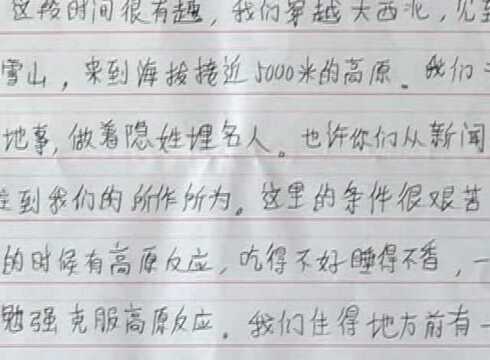 这段时间很有趣，我们穿越大西北，
雪山，来到海拔接近5000米的高原。我们
地事，做着隐姓埋名人。也许你们从新闻
到我们的所作所为。这里的条件很艰苦
的时候有高原反应，吃得不好睡得不香，一
勉强克服高原反应。我们住得地方前有一